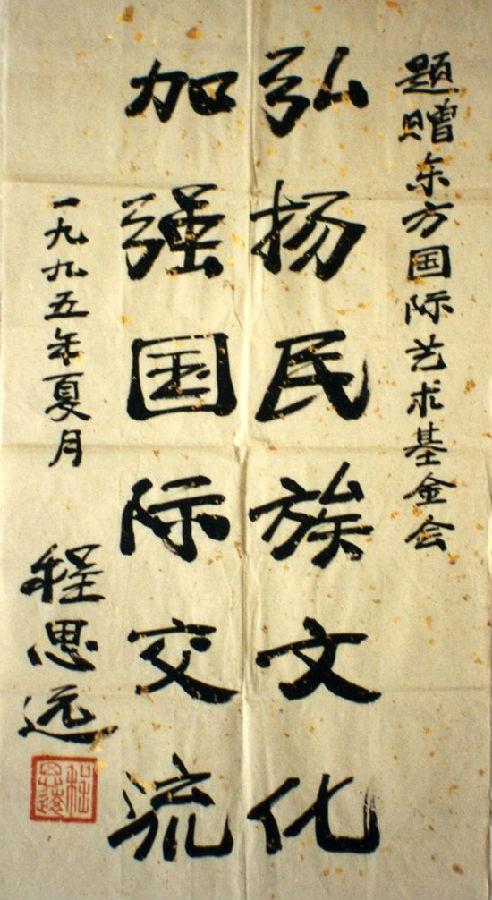 题赠东方国际艺术基金会
弘扬民族文化
加强国际交流
一九九五年夏月
程思远